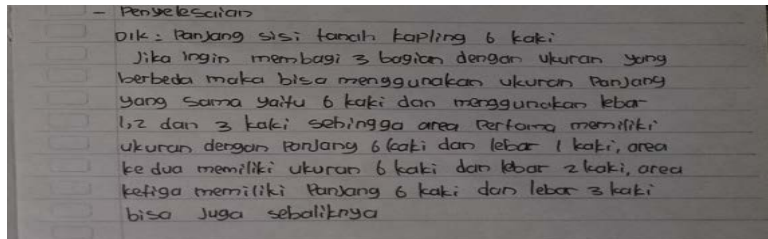 - Penyelesaian
Dik : Panjang sisi tanah kapling 6 kaki
Jika ingin membagi 3 bagian dengan ukuran yang
berbeda maka bisa menggunakan ukuran Panjang
yang sama yaitu 6 kaki dan menggunakan lebar
1,2 dan 3 kaki sehingga area Pertama memiliki
ukuran dengan Panjang 6 kaki dan lebar 1 kaki, area
ke dua memiliki ukuran 6 kaki dan lebar 2 kaki, area
ketiga memiliki Panjang 6 kaki dan lebar 3 kaki
bisa Juga sebaliknya